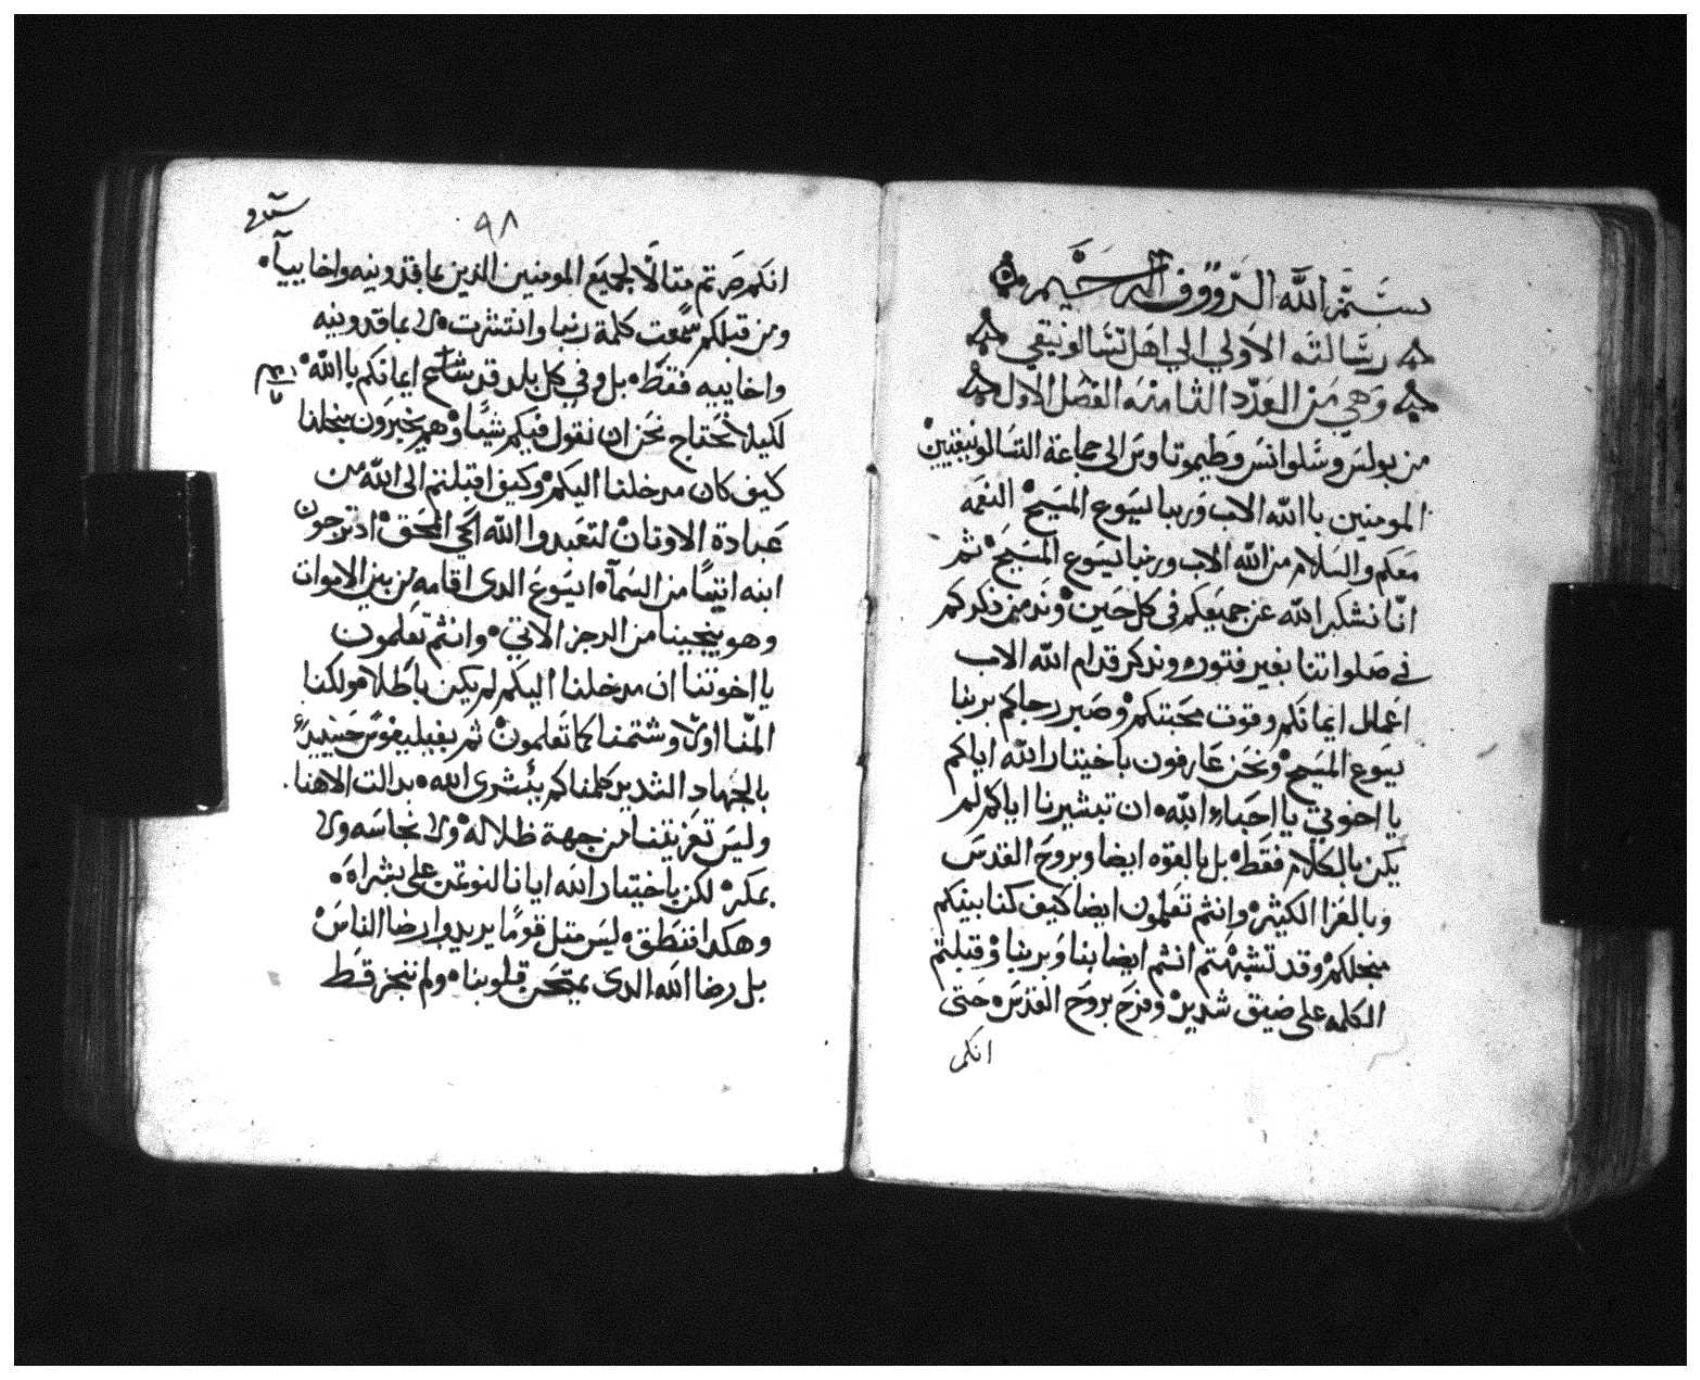 بسم الله الرووف الرحيم
رسالته الاولي الي اهل تسالونيقي
وهي من العدد الثامنه الفصل الاول
من بولس وسلوانس وطيموتاوس الى جماعة التسالونيقيين
المومنين باالله الاب وربنا يسوع المسيح النعمه
معكم والسلام من الله الاب وربنا يسوع المسيح ثم
انا نشكر الله عن جميعكم في كل حين وندمن ذكركم
في صلواتنا بغير فتور وندكر قدام الله الاب
اعمال ايمانكم وقوت محبتكم وصبر رجاكم بربنا
يسوع المسيح ونحن عارفون باختيار الله اياكم
يا اخوتي يا احباء الله ان تبشيرنا اياكم لم
يكن بالكلام فقط بل بالقوه ايضا وبروح القدس
وبالعزا الكثير وانتم تعلمون ايضا كيف كنا بينكم
منجلكم وقد تشبهتم انتم ايضا بنا وبربنا وقبلتم
الكلمه على ضيق شديد وفرح بروح القدس حتى
انكم
٩٨
انكم صرتم متالا لجميع المومنين الذين بماقدونيه واخاييا
ومن قبلكم سمعت كلمة ربنا وانتشرت ولا بماقدونيه
واخاييه فقط بل وفي كل بلد قد شاع ايمانكم باالله
لكيلا نحتاج نحن ان نقول فيكم شيا وهم يخبرون منجلنا
كيف كان مدخلنا اليكم وكيف اقبلتم الى الله من
عبادة الاوتان لتعبدوا الله الحي المحق اد ترجون
ابنه اتيا من السمآ ايسوع الدى اقامه من بين الاموات
وهو ينجينا من الرجز الاتي وانتم تعلمون
يا اخوتنا ان مدخلنا اليكم لم يكن باطلا ولكنا
المنا اولا وشتمنا كما تعلمون ثم بفيليفوس حينيد
بالجهاد الشديد كلمناكم ببشرى الله بدالت الاهنا
وليس تعزيتنا من جهة ظلاله ولا نجاسه ولا
بمكر لكن باختيار الله ايانا لنوتمن على بشراه
وهكدا ننطق ليس متل قوما يريدوا رضا الناس
بل رضا الله الدى يمتحن قلوبنا ولم ننجز قط